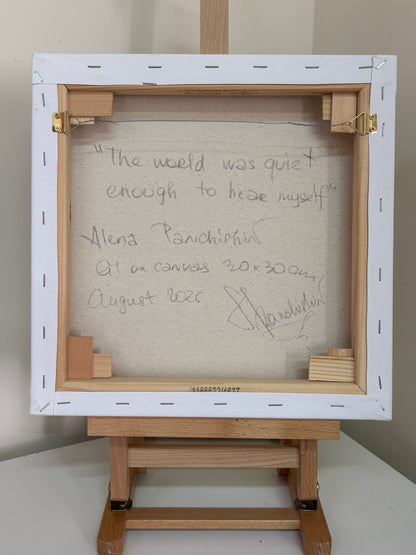 "The world was quiet
enough to hear myself"
Alena Panchishin
Oil on canvas 30x30cm
August 2025